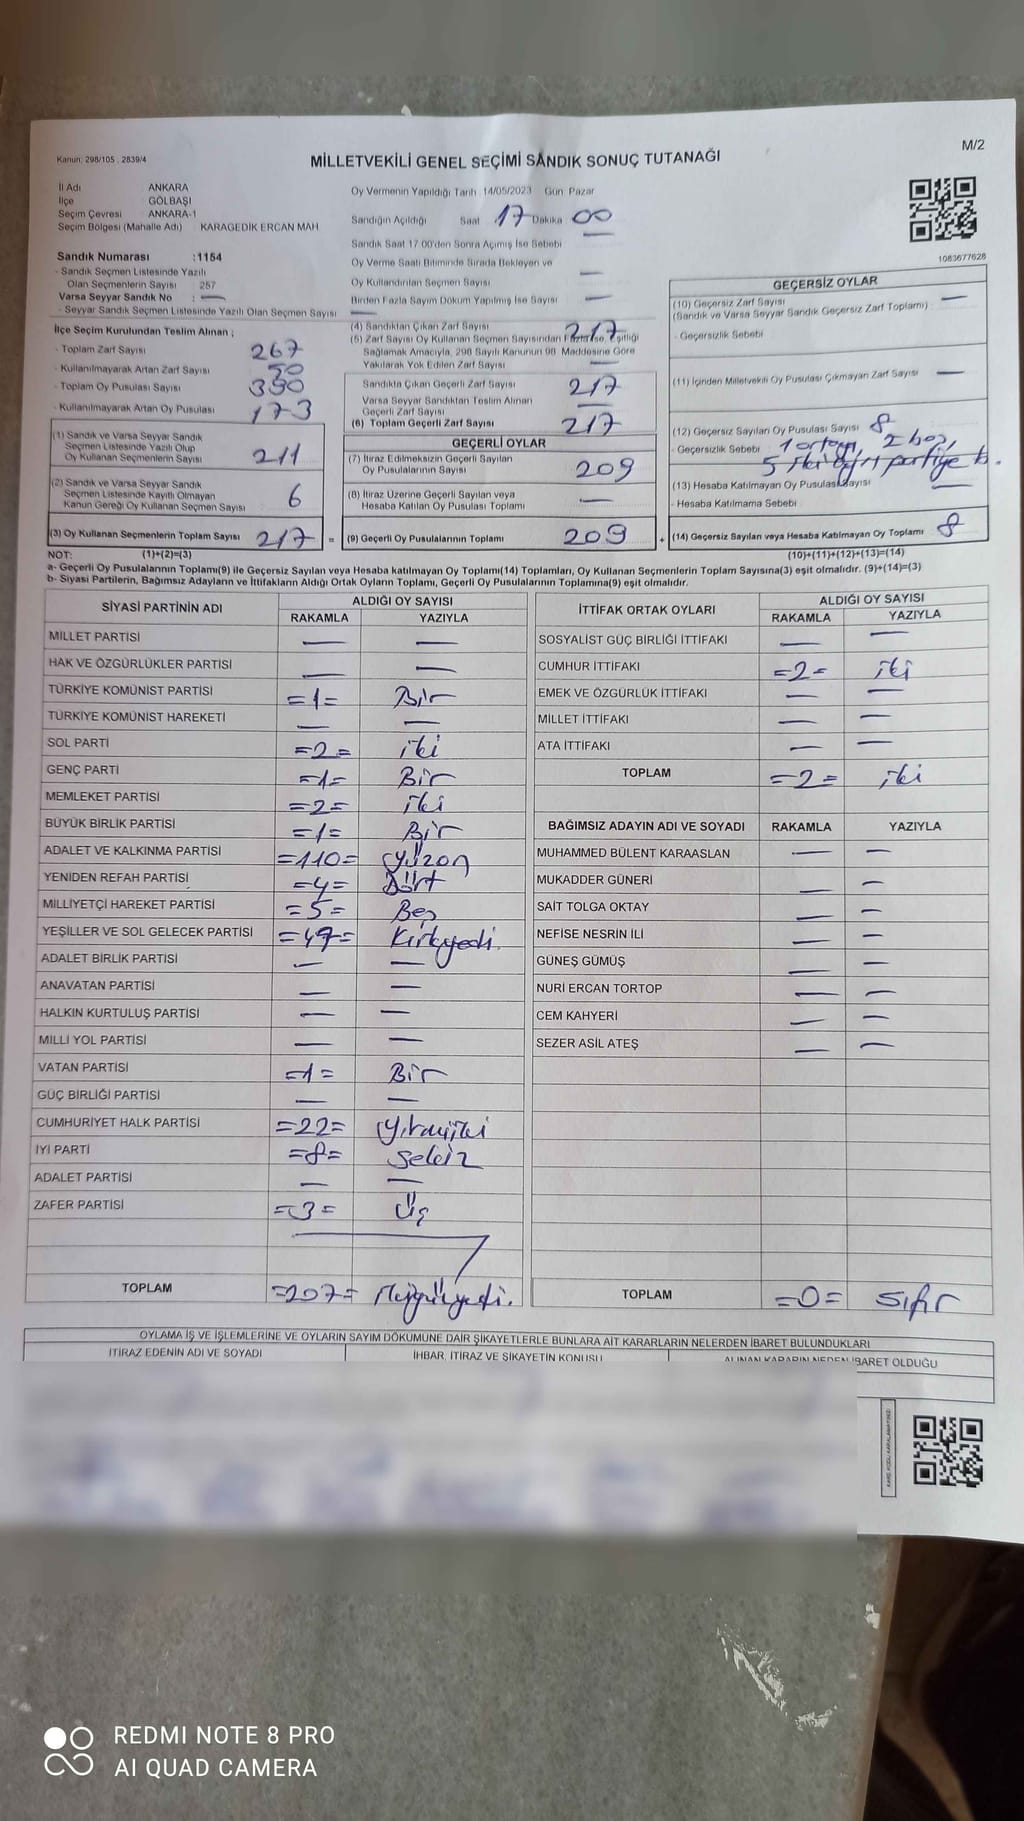 M/2
Kanun: 298/105 . 2839/4
MİLLETVEKİLİ GENEL SEÇİMİ SANDIK SONUÇ TUTANAĞI
İl Adı ANKARA
İlçe GÖLBAŞI
Seçim Çevresi ANKARA-1
Seçim Bölgesi (Mahalle Adı) KARAGEDİK ERCAN MAH
Sandık Numarası :1154
- Sandık Seçmen Listesinde Yazılı
Olan Seçmenlerin Sayısı 257
Varsa Seyyar Sandık No : —
- Seyyar Sandık Seçmen Listesinde Yazılı Olan Seçmen Sayısı —
Oy Vermenin Yapıldığı Tarih 14/05/2023 Gün Pazar
Sandığın Açıldığı Saat 17 Dakika 00
Sandık Saat 17:00'den Sonra Açılmış İse Sebebi —
Oy Verme Saati Bitiminde Sırada Bekleyen ve
Oy Kullandırılan Seçmen Sayısı —
Birden Fazla Sayım Döküm Yapılmış İse Sayısı —
1083677628
İlçe Seçim Kurulundan Teslim Alınan ;
- Toplam Zarf Sayısı 267
- Kullanılmayarak Artan Zarf Sayısı 50
- Toplam Oy Pusulası Sayısı 390
- Kullanılmayarak Artan Oy Pusulası 173
(1) Sandık ve Varsa Seyyar Sandık
Seçmen Listesinde Yazılı Olup
Oy Kullanan Seçmenlerin Sayısı 211
(2) Sandık ve Varsa Seyyar Sandık
Seçmen Listesinde Kayıtlı Olmayan
Kanun Gereği Oy Kullanan Seçmen Sayısı 6
(3) Oy Kullanan Seçmenlerin Toplam Sayısı 217 =
(4) Sandıktan Çıkan Zarf Sayısı 217
(5) Zarf Sayısı Oy Kullanan Seçmen Sayısından Fazla İse, Eşitliği
Sağlamak Amacıyla, 298 Sayılı Kanunun 98. Maddesine Göre
Yakılarak Yok Edilen Zarf Sayısı —
Sandıkta Çıkan Geçerli Zarf Sayısı 217
Varsa Seyyar Sandıktan Teslim Alınan
Geçerli Zarf Sayısı —
(6) Toplam Geçerli Zarf Sayısı 217
GEÇERLİ OYLAR
(7) İtiraz Edilmeksizin Geçerli Sayılan
Oy Pusulalarının Sayısı 209
(8) İtiraz Üzerine Geçerli Sayılan veya
Hesaba Katılan Oy Pusulaları Toplamı —
(9) Geçerli Oy Pusulalarının Toplamı 209 +
GEÇERSİZ OYLAR
(10) Geçersiz Zarf Sayısı —
(Sandık ve Varsa Seyyar Sandık Geçersiz Zarf Toplamı)
- Geçersizlik Sebebi
(11) İçinden Milletvekili Oy Pusulası Çıkmayan Zarf Sayısı —
(12) Geçersiz Sayılan Oy Pusulası Sayısı 8
- Geçersizlik Sebebi 1 ortam, 2 boş,
5 iki ayrı partiye b.
(13) Hesaba Katılmayan Oy Pusulası Sayısı —
- Hesaba Katılmama Sebebi
(14) Geçersiz Sayılan veya Hesaba Katılmayan Oy Toplamı 8
NOT: (1)+(2)=(3) (10)+(11)+(12)+(13)=(14)
a- Geçerli Oy Pusulalarının Toplamı(9) ile Geçersiz Sayılan veya Hesaba katılmayan Oy Toplamı(14) Toplamları, Oy Kullanan Seçmenlerin Toplam Sayısına(3) eşit olmalıdır. (9)+(14)=(3)
b- Siyasi Partilerin, Bağımsız Adayların ve İttifakların Aldığı Ortak Oyların Toplamı, Geçerli Oy Pusulalarının Toplamına(9) eşit olmalıdır.
SİYASİ PARTİNİN ADI ALDIĞI OY SAYISI
RAKAMLA YAZIYLA
MİLLET PARTİSİ — —
HAK VE ÖZGÜRLÜKLER PARTİSİ — —
TÜRKİYE KOMÜNİST PARTİSİ =1= Bir
TÜRKİYE KOMÜNİST HAREKETİ — —
SOL PARTİ =2= iki
GENÇ PARTİ =1= Bir
MEMLEKET PARTİSİ =2= iki
BÜYÜK BİRLİK PARTİSİ =1= Bir
ADALET VE KALKINMA PARTİSİ =110= Yüzon
YENİDEN REFAH PARTİSİ =4= Dört
MİLLİYETÇİ HAREKET PARTİSİ =5= Beş
YEŞİLLER VE SOL GELECEK PARTİSİ =47= Kırkyedi.
ADALET BİRLİK PARTİSİ — —
ANAVATAN PARTİSİ — —
HALKIN KURTULUŞ PARTİSİ — —
MİLLİ YOL PARTİSİ — —
VATAN PARTİSİ =1= Bir
GÜÇ BİRLİĞİ PARTİSİ — —
CUMHURİYET HALK PARTİSİ =22= Yirmiiki
İYİ PARTİ =8= Sekiz
ADALET PARTİSİ — —
ZAFER PARTİSİ =3= Üç
TOPLAM =207= ikiyüzyedi.
İTTİFAK ORTAK OYLARI ALDIĞI OY SAYISI
RAKAMLA YAZIYLA
SOSYALİST GÜÇ BİRLİĞİ İTTİFAKI — —
CUMHUR İTTİFAKI =2= iki
EMEK VE ÖZGÜRLÜK İTTİFAKI — —
MİLLET İTTİFAKI — —
ATA İTTİFAKI — —
TOPLAM =2= iki
BAĞIMSIZ ADAYIN ADI VE SOYADI RAKAMLA YAZIYLA
MUHAMMED BÜLENT KARAASLAN — —
MUKADDER GÜNERİ — —
SAİT TOLGA OKTAY — —
NEFİSE NESRİN İLİ — —
GÜNEŞ GÜMÜŞ — —
NURİ ERCAN TORTOP — —
CEM KAHYERİ — —
SEZER ASİL ATEŞ — —
TOPLAM =0= sıfır
OYLAMA İŞ VE İŞLEMLERİNE VE OYLARIN SAYIM DÖKÜMÜNE DAİR ŞİKAYETLERLE BUNLARA AİT KARARLARIN NELERDEN İBARET BULUNDUKLARI
İTİRAZ EDENİN ADI VE SOYADI İHBAR, İTİRAZ VE ŞİKAYETİN KONUSU ALINAN KARARIN NEDEN İBARET OLDUĞU
REDMI NOTE 8 PRO
AI QUAD CAMERA